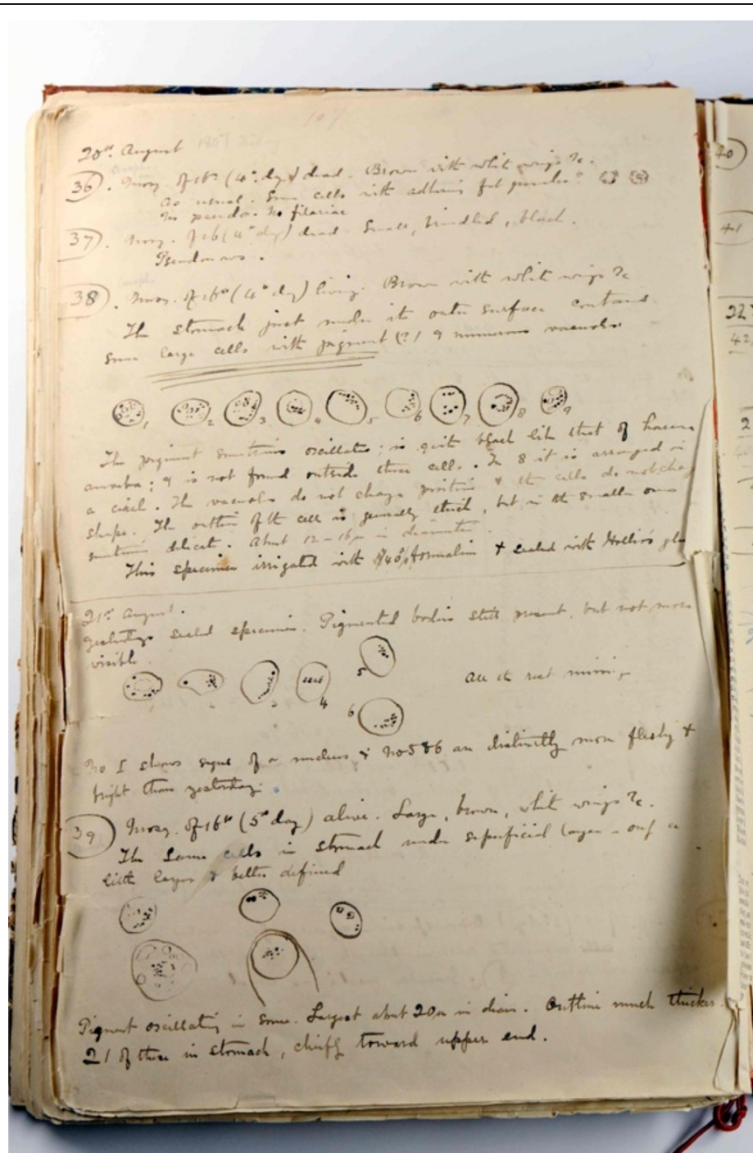 107
20th August
36. Mosq. of 16th (4th day) dead. Brown with whit wings &c.
As usual. Some cells with adhering fat granules?
No pseudo. No filariae
37. Mosq. of 16 (4th day) dead. Small, brindled, black.
38. Mosq. of 16th (4th day) living. Brown with whit wings &c
The stomach just under its outer surface contains
some large cells with pigment (?) & numerous vacuoles
1 2 3 4 5 6 7 8 9
The pigment sometimes oscillates; is quite black like that of
amoeba; & is not found outside these cells. In 8 it is arranged in
a circle. The vacuoles do not change position & the cells do not
shape. The outline of the cell is generally thick, but in the smaller ones
sometimes delicate. About 12-16µ in diameter
This specimen irrigated with 40% formalin & sealed with
21st August.
Yesterdays sealed specimen. Pigmented bodies still present, but not more
visible.
5
3 4
All the rest
6
No 1 shows signs of a nucleus & No 5 & 6 are distinctly more fleshy &
bright than yesterday.
39 Mosq. of 16th (5th day) alive. Large, brown, whit wings &c.
The same cells in stomach under superficial layer - only a
little larger & better defined
Pigment oscillating in some. Largest about 20µ in diam. Outline much thicker
21 of these in stomach, chiefly toward upper end.
40
41
22
42